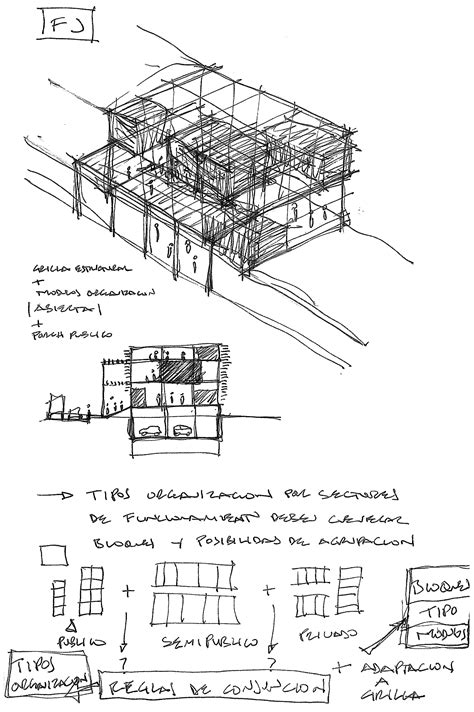 FJ
GRILLA ESTRUCTURAL
+
MODULOS ORGANIZACION
[ABIERTA]
+
PORCH PUBLICO
→ TIPOS ORGANIZACION POR SECTORES
DE FUNCIONAMIENTO DEBEN GENERAR
BLOQUES Y POSIBILIDAD DE AGRUPACION
+ +
PUBLICO SEMIPUBLICO PRIVADO
BLOQUES
TIPO
MODULOS
? ?
TIPOS
ORGANIZACION
REGLAS DE CONJUNCION
+ ADAPTACION
A
GRILLA